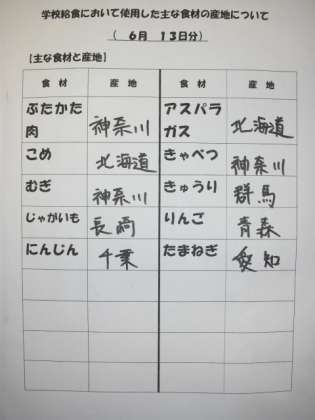 学校給食において使用した主な食材の産地について
( 6月 13日分)
【主な食材と産地】
食材 産地 食材 産地
ぶたかた肉 神奈川 アスパラガス 北海道
こめ 北海道 きゃべつ 神奈川
むぎ 神奈川 きゅうり 群馬
じゃがいも 長崎 りんご 青森
にんじん 千葉 たまねぎ 愛知